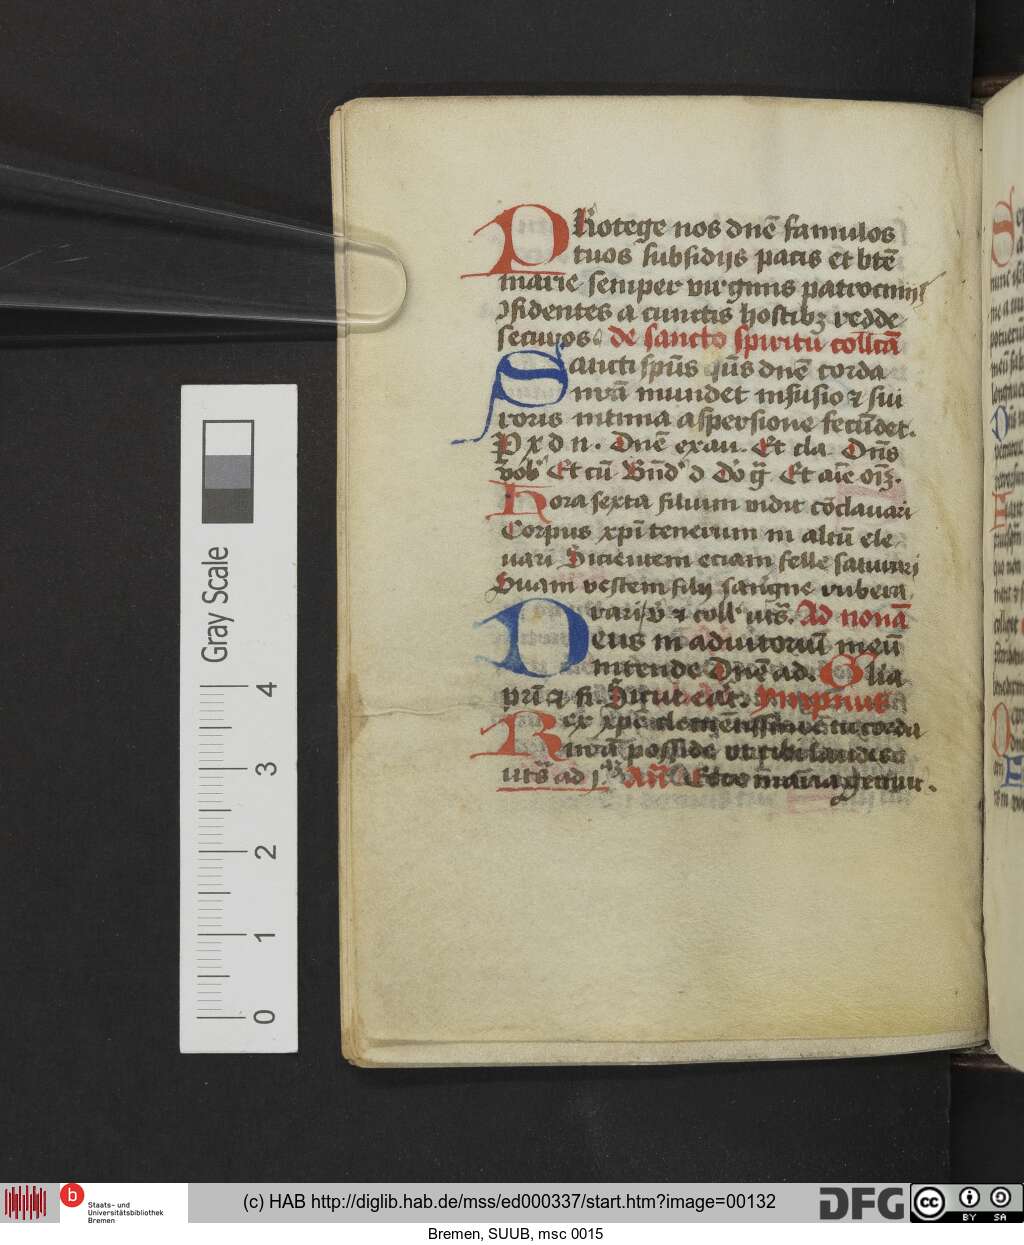 PRotege nos dnē famulos
tuos subsidijs pacis et btē
marie semper virginis patrocinijs
ɔfidentes a cunctis hostibꝫ redde
securos de sancto spiritu collcā
Sancti spūs q̄s dnē corda
nrā mundet infusio ⁊ sui
roris intima aspersione fecūdet.
P x d n. Dnē exau. Et cla Dn̄s
vob Et cū Bn̄d d Do gr̄. Et aīe oīꝫ.
Hora sexta filium vidit cōclavari
Corpus xpī tenerum in altū ele
uari Sitientem eciam felle saturari
Suam vestem filij sangne rubera
vari v ⁊ coll uts̄. Ad nonā
Deus in adiutoriū meū
intende Dnē ad. Glia
prī ⁊ fi. Sicut erat. Ympnus
Rex xpē clementissime tu corda
nrā posside ut tibi laudes
uts̄ ad j An̄ Ecce maria genuit.
Gray Scale
4
3
2
1
0
b
Staats- und
Universitätsbibliothek
Bremen
(c) HAB http://diglib.hab.de/mss/ed000337/start.htm?image=00132
DFG
cc
BY SA
Bremen, SUUB, msc 0015